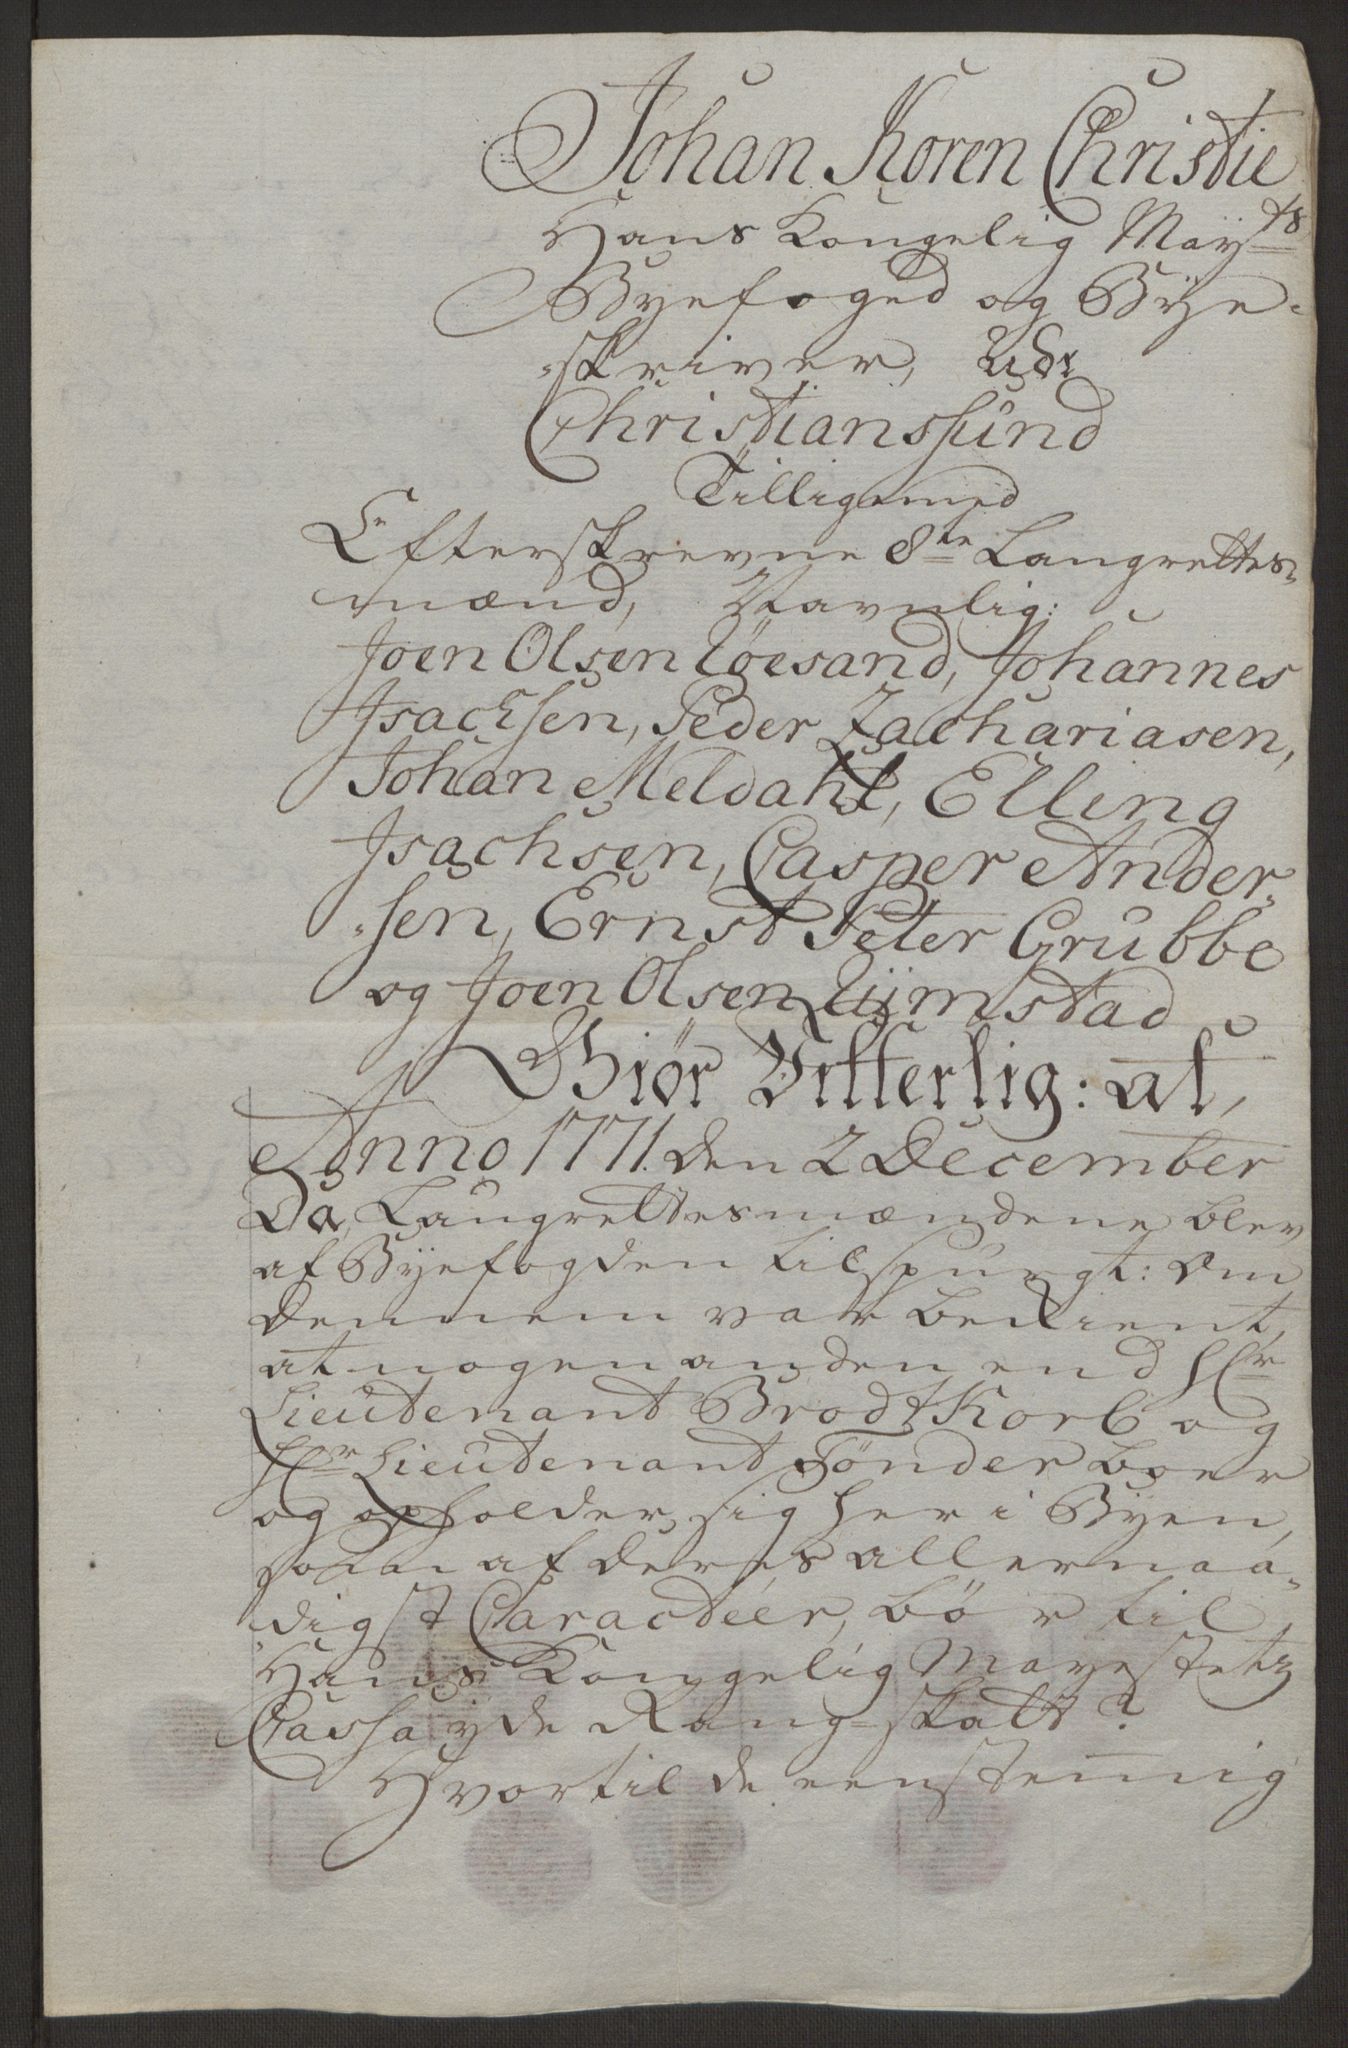 Johan Koren Christie
Hans Kongelig Mayts
Byefoged og Bÿe-
skriver, Udi
Christianssund
Tilligemed
Efterskrevne 8te Laugrettes-
mænd, Navnlig:
Joen Olsen Løesand, Johannes
Isachsen, Peder Zachariasen,
Johan Meldahl, Elling
Isachsen, Casper Ander-
sen, Ernst Peter Grubbe
og Joen Olsen
Giør Vitterlig: at,
Anno 1771. den 2 December
Da Laugrettesmændene blev
af Bÿefogden tilspurgt: Om
dennem var bekient,
at nogen anden end Hr
Lieutenant Brodtkorb og
Hr Lieutenant Tønder boer
og opholder sig her i Byen,
som af deres allernaa-
digst Caracteer, bør til
Hans Kongelig Mayestetz
Cassa yde Rang-skatt?
Hvortil de eenstemmig